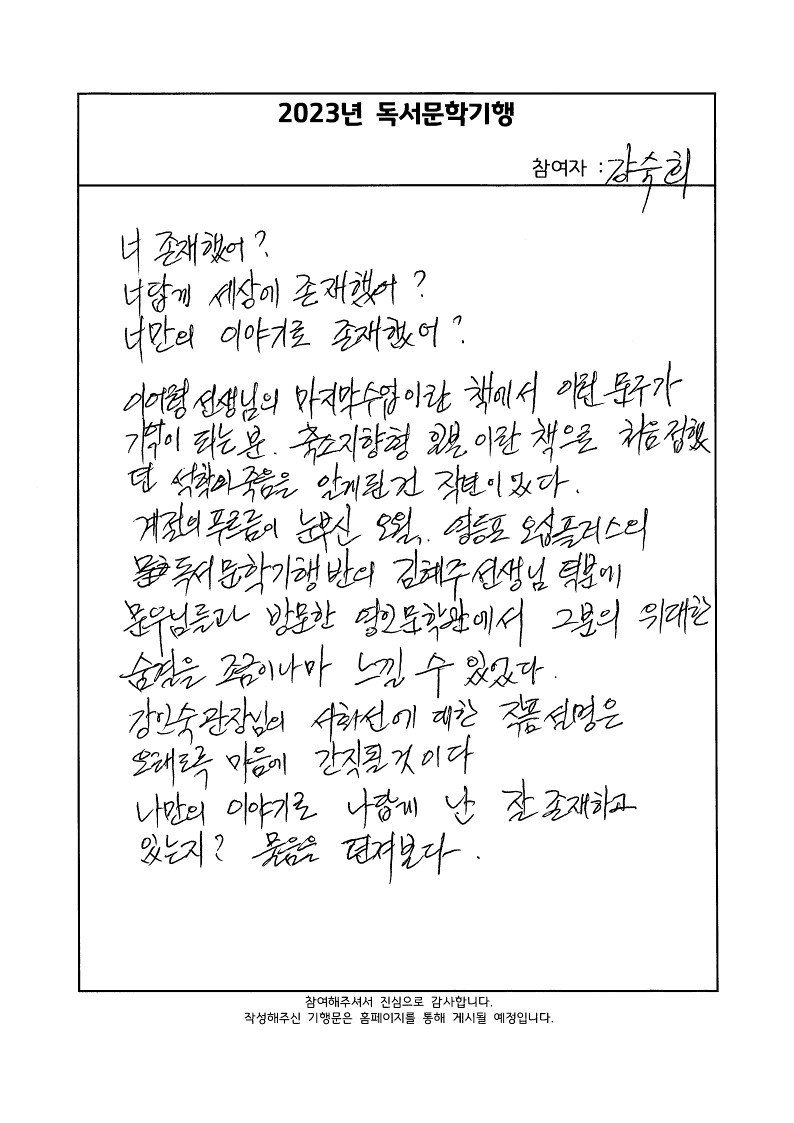 2023년 독서문학기행
참여자 : 강숙희
너 존재했어?
너답게 세상에 존재했어?
너만의 이야기로 존재했어?
이어령 선생님의 마지막수업이란 책에서 이런 문구가
기억이 되는 분. 축소지향형 일본이란 책으로 처음 접했
던 석학의 죽음을 알게된 건 작년이었다.
계절의 푸르름이 눈부신 오월, 영등포 오십플러스의
독서문학기행반의 김혜주선생님 덕분에
문우님들과 방문한 영인문학관에서 그분의 위대한
숨결을 조금이나마 느낄 수 있었다.
강인숙관장님의 서화선에 대한 작품설명은
오래도록 마음에 간직될것이다
나만의 이야기로 나답게 난 잘 존재하고
있는지? 물음을 던져본다.
참여해주셔서 진심으로 감사합니다.
작성해주신 기행문은 홈페이지를 통해 게시될 예정입니다.